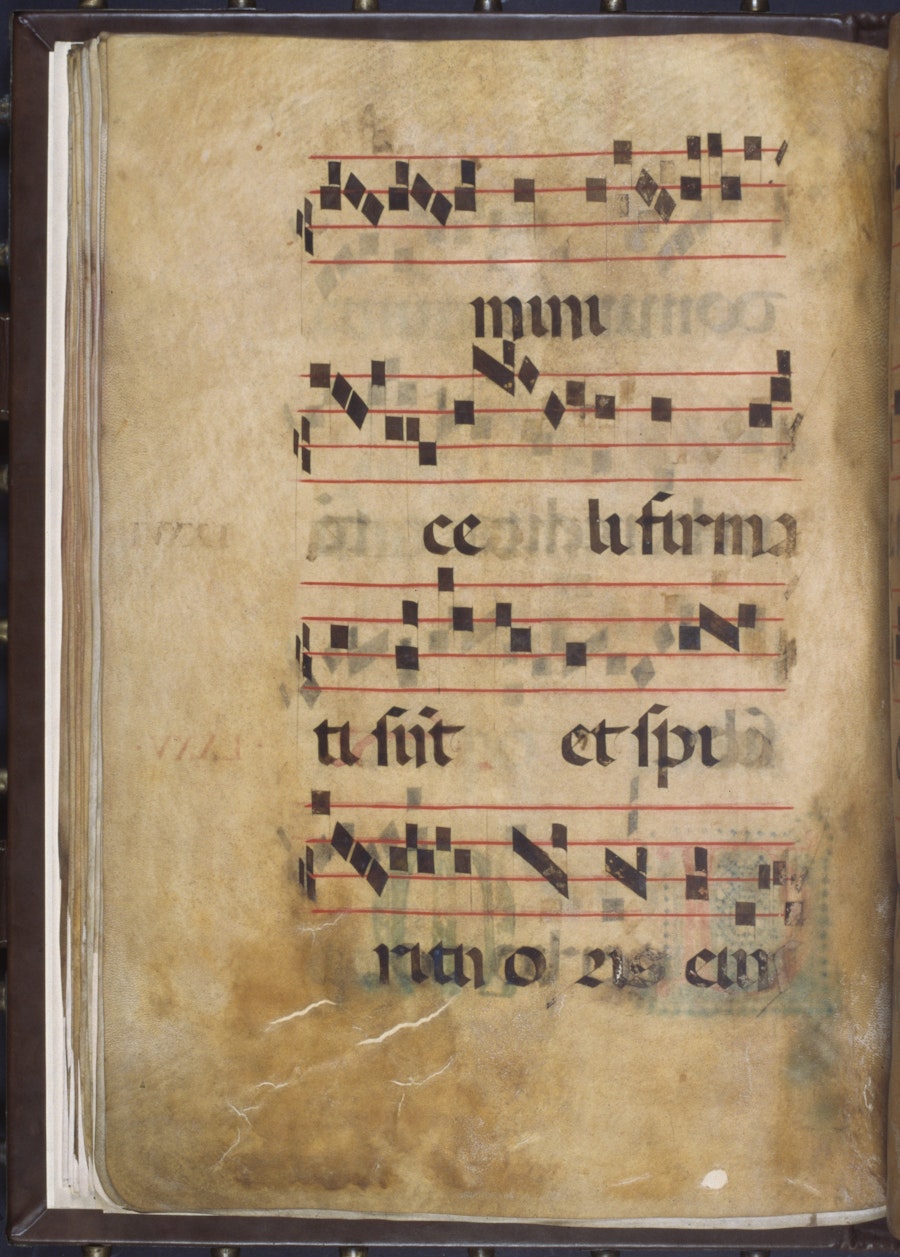 mini
ce li firma
ti sūt et spi
ritu o ris eius